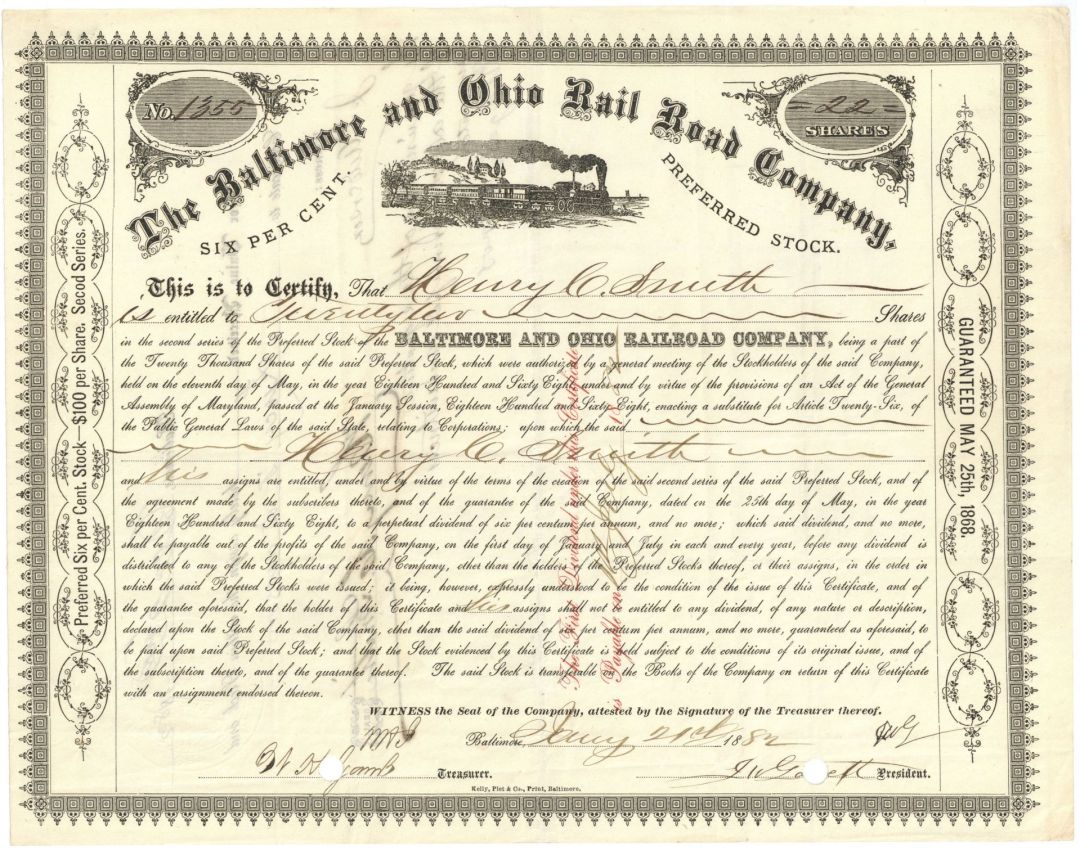 No. 1355
= 22 =
SHARES
The Baltimore and Ohio Rail Road Company,
SIX PER CENT. PREFERRED STOCK.
This is to Certify, That Henry C. Smith
is entitled to Twenty two Shares
in the second series of the Preferred Stock of the BALTIMORE AND OHIO RAILROAD COMPANY, being a part of
the Twenty Thousand Shares of the said Preferred Stock, which were authorized by a general meeting of the Stockholders of the said Company,
held on the eleventh day of May, in the year Eighteen Hundred and Sixty Eight, under and by virtue of the provisions of an Act of the General
Assembly of Maryland, passed at the January Session, Eighteen Hundred and Sixty Eight, enacting a substitute for Article Twenty-Six, of
the Public General Laws of the said State, relating to Corporations; upon which the said
Henry C. Smith
and his assigns are entitled, under and by virtue of the terms of the creation of the said second series of the said Preferred Stock, and of
the agreement made by the subscribers thereto, and of the guarantee of the said Company, dated on the 25th day of May, in the year
Eighteen Hundred and Sixty Eight, to a perpetual dividend of six per centum per annum, and no more; which said dividend, and no more,
shall be payable out of the profits of the said Company, on the first day of January and July in each and every year, before any dividend is
distributed to any of the Stockholders of the said Company, other than the holders of the Preferred Stocks thereof, or their assigns, in the order in
which the said Preferred Stocks were issued; it being, however, expressly understood to be the condition of the issue of this Certificate, and of
the guarantee aforesaid, that the holder of this Certificate and his assigns shall not be entitled to any dividend, of any nature or description,
declared upon the Stock of the said Company, other than the said dividend of six per centum per annum, and no more, guaranteed as aforesaid, to
be paid upon said Preferred Stock; and that the Stock evidenced by this Certificate is held subject to the conditions of its original issue, and of
the subscription thereto, and of the guarantee thereof. The said Stock is transferable on the Books of the Company on return of this Certificate
with an assignment endorsed thereon.
WITNESS the Seal of the Company, attested by the Signature of the Treasurer thereof.
Baltimore, Jany 21st 1882
Treasurer.
J W Garrett President.
Kelly, Piet & Co., Print, Baltimore.
Preferred Six per Cent. Stock $100 per Share. Secod Series.
GUARANTEED MAY 25th, 1868.
The First Dividend under this Certificate
is Payable on